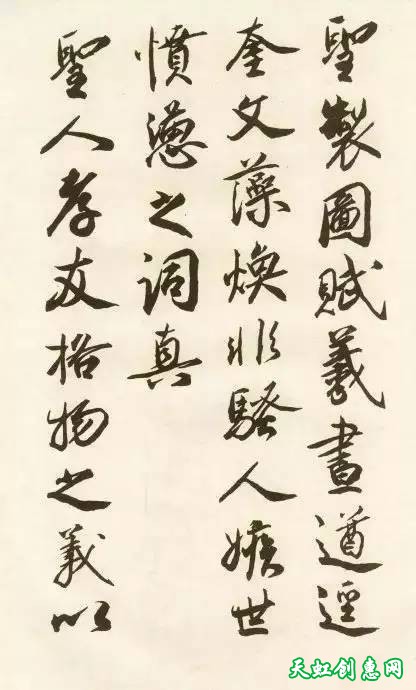 聖製圖賦羲畫遒逕
奎文藻煥非騷人嫉世
憤懣之詞真
聖人孝友格物之義以
天虹创惠网